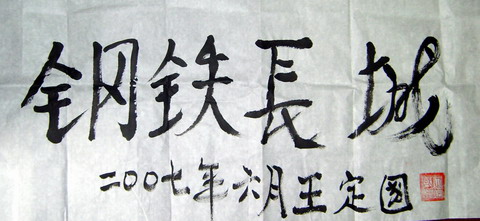 钢铁長城
二〇〇七年六月王定國